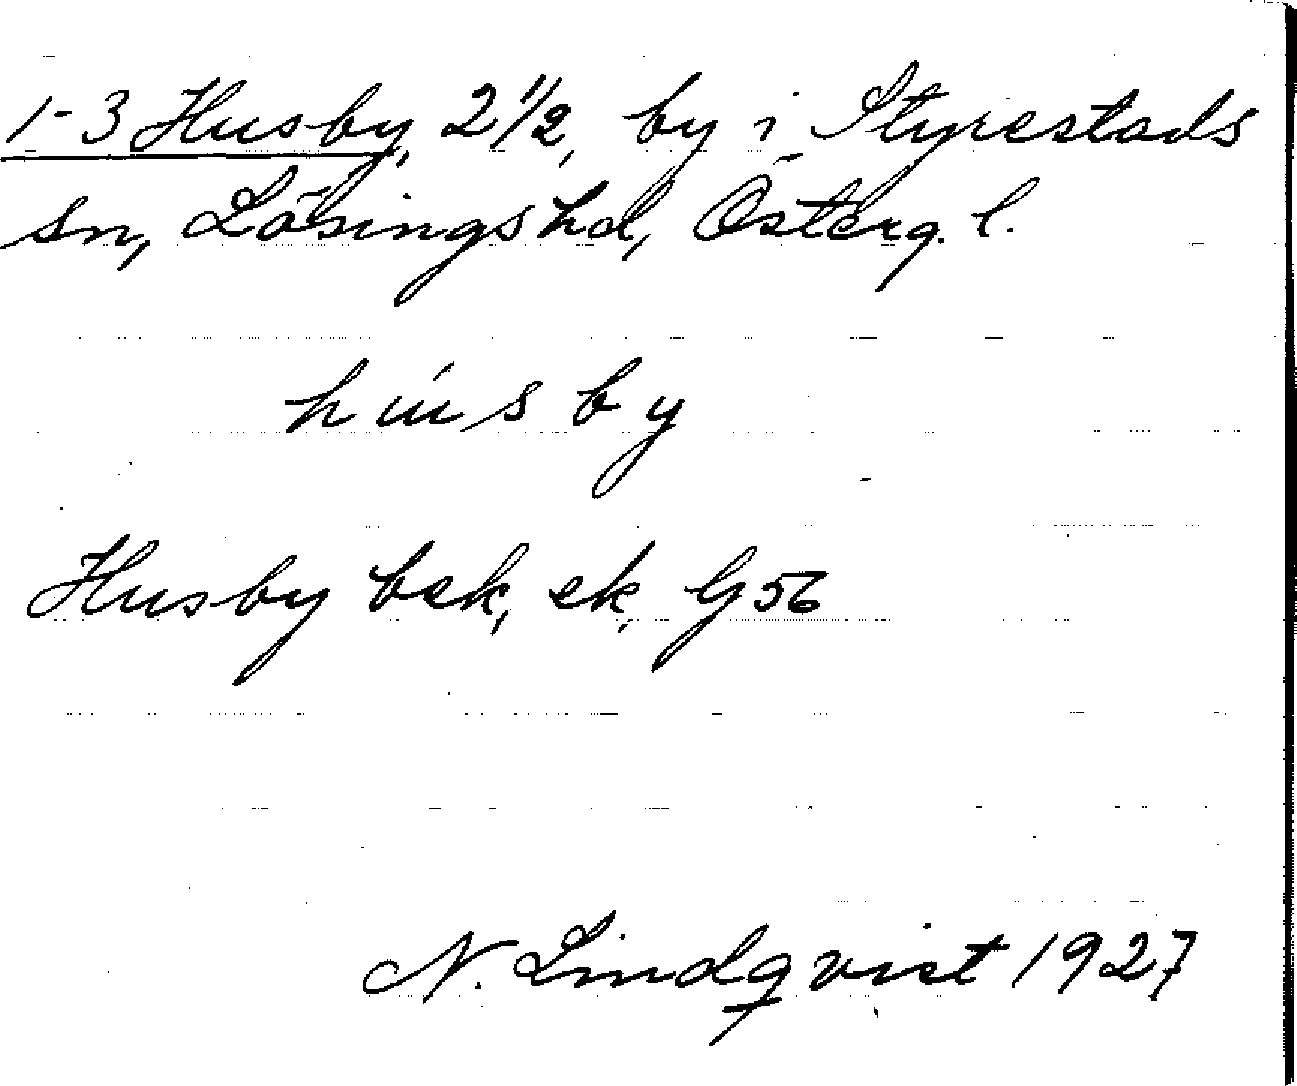 1-3 Husby, 2 1/2, by i Styrestads
sn, Lösings hd, Österg. l.
húsby
Husby bek, ek, G 56
N. Lindqvist 1927